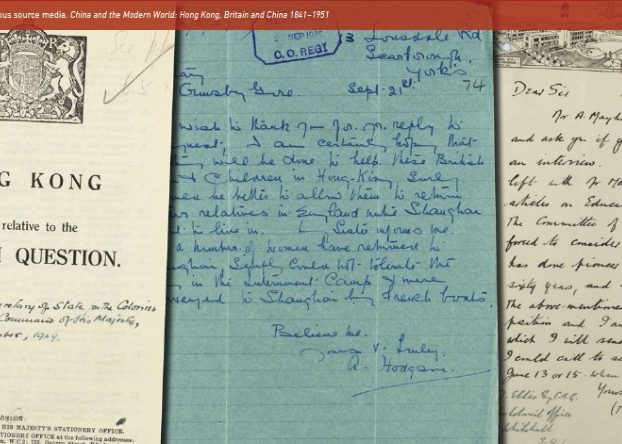 ous source media. China and the Modern World: Hong Kong, Britain and China 1841–1951
G KONG
relative to the
QUESTION.
Secretary of State for the Colonies
Command of His Majesty,
1929.
LONDON:
HIS MAJESTY'S STATIONERY OFFICE.
STATIONERY OFFICE at the following addresses:
SEP 193
C. O. REGY
3 Lonsdale Rd
Scarborough.
Yorks
74
Ormsby Gore. Sept. 21st.
wish to thank you for yr. reply to
request, I am certainly hoping that
will be done to help these British
& Children in Hong-Kong. Surely
be better to allow them to return
relatives in England until Shanghai
to live in. My Sister informs me
a number of women have returned to
simply could not tolerate the
in the Internment Camp & were
conveyed to Shanghai by French boats.
Believe me.
Yours v. truly.
A. Hodgson.
Dear Sir
Mr A. Mayh
and ask you if y
an interview.
left with Mr Ma
articles on Educa
The Committee of
forced to consider
has done pioneer
sixty years, and
The above-mentione
position and I a
which I will send
I could call to s
June 13 or 15. when
Yours